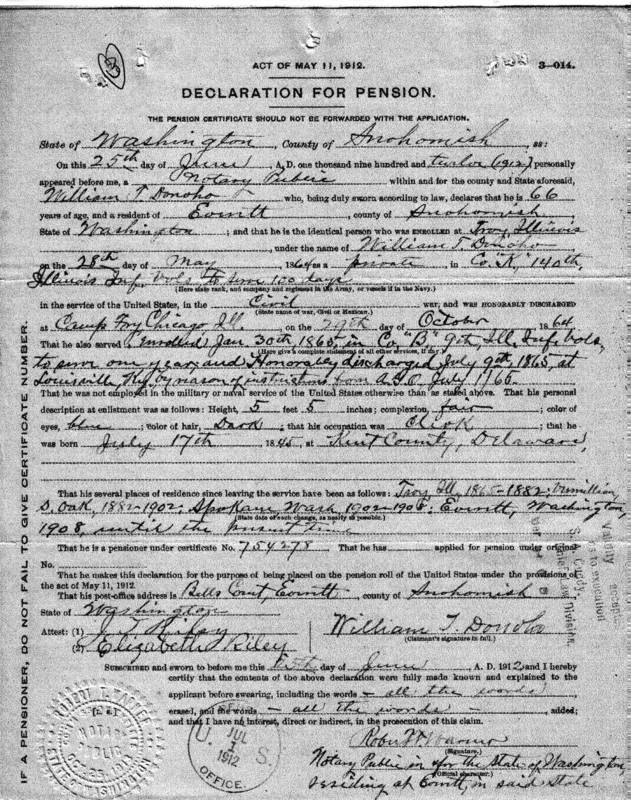 ACT OF MAY 11, 1912.
3—014.
DECLARATION FOR PENSION.
THE PENSION CERTIFICATE SHOULD NOT BE FORWARDED WITH THE APPLICATION.
State of Washington, County of Snohomish, ss:
On this 25th day of June, A. D. one thousand nine hundred and twelve (1912) personally
appeared before me, a Notary Public within and for the county and State aforesaid,
William T. Donoho who, being duly sworn according to law, declares that he is 66
years of age, and a resident of Everett, county of Snohomish
State of Washington; and that he is the identical person who was ENROLLED at Troy, Illinois
under the name of William T. Donoho
on the 28th day of May, 1864, as a private, in Co. "K," 140th,
Illinois Inf. Vols. to serve 100 days
(Here state rank, and company and regiment in the Army, or vessels if in the Navy.)
in the service of the United States, in the Civil war, and was HONORABLY DISCHARGED
(State name of war, Civil or Mexican.)
at Camp Fry Chicago, Ill. on the 29th day of October, 1864
That he also served Enrolled Jan. 30th 1865 in Co. "B," 9th Ill. Inf. Vols.
(Here give a complete statement of all other services, if any.)
to serve one year, and Honorably discharged July 9th, 1865, at
Louisville, Ky. by reason of instructions from A.G.O. July 1865.
That he was not employed in the military or naval service of the United States otherwise than as stated above. That his personal
description at enlistment was as follows: Height, 5 feet 5 inches; complexion, fair; color of
eyes, blue; color of hair, Dark; that his occupation was Clerk; that he
was born July 17th, 1845, at Kent County, Delaware,
That his several places of residence since leaving the service have been as follows: Troy, Ill, 1865-1882; Vermillion,
S. Dak, 1882-1902; Spokane, Wash. 1902-1908; Everett, Washington,
(State date of each change, as nearly as possible.)
1908, until the present time
That he is a pensioner under certificate No. 754278 That he has applied for pension under original
No.
That he makes this declaration for the purpose of being placed on the pension roll of the United States under the provisions of
the act of May 11, 1912.
That his post-office address is Bells Court, Everett, county of Snohomish
State of Washington
Attest: (1) J. T. Riley
William T. Donoho
(Claimant's signature in full.)
(2) Elizabeth Riley
SUBSCRIBED and sworn to before me this 25th day of June, A. D. 1912, and I hereby
certify that the contents of the above declaration were fully made known and explained to the
applicant before swearing, including the words - all the words
erased, and the words - all the words - added;
and that I have no interest, direct or indirect, in the prosecution of this claim.
Robert T. Warner
(Signature.)
Notary Public in & for the State of Washington,
(Official character.)
residing at Everett, in said State
U. S.
JUL
1
1912
OFFICE.
IF A PENSIONER, DO NOT FAIL TO GIVE CERTIFICATE NUMBER.